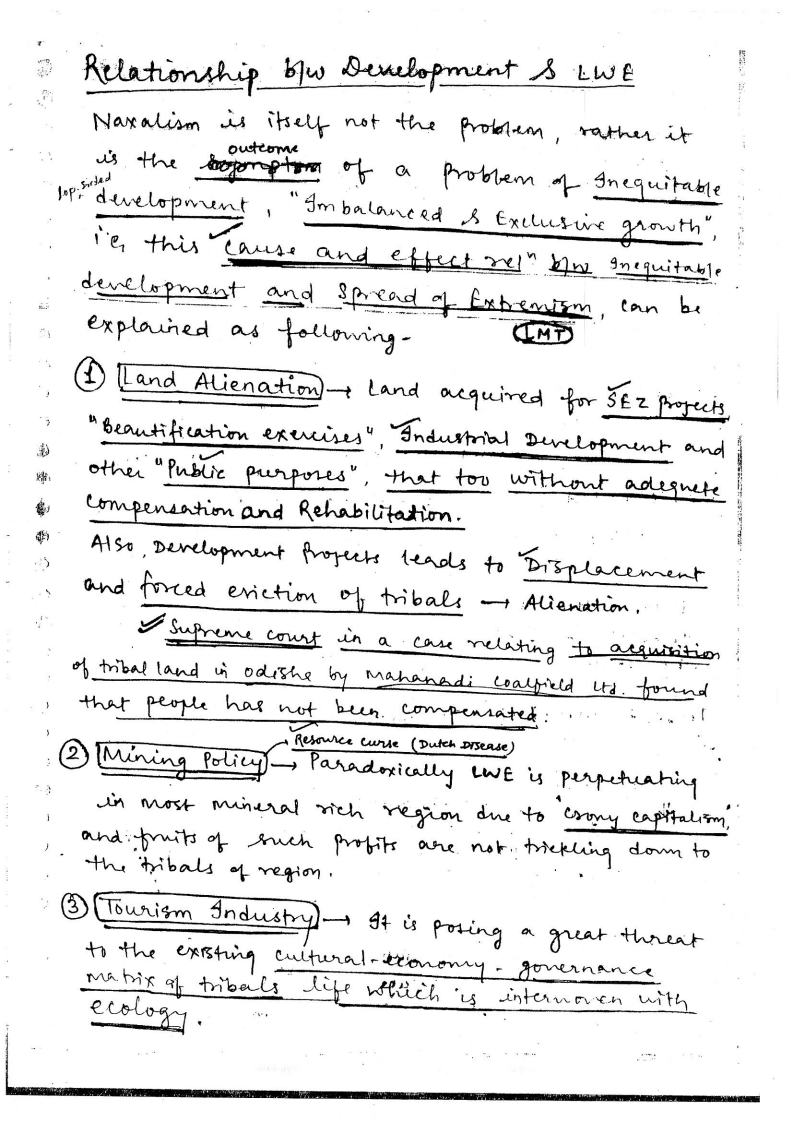 Relationship b/w Development & LWE
Naxalism is itself not the problem, rather it
outcome
is the symptom of a problem of Inequitable
lop-sided
development, "Imbalanced & Exclusive growth",
i.e, this cause and effect relⁿ b/w Inequitable
development and Spread of Extremism, can be
explained as following-
LMT
① Land Alienation → Land acquired for SEZ Projects
"Beautification exercises", Industrial Development and
other "Public purposes", that too without adequete
Compensation and Rehabilitation.
Also, Development Projects leads to Displacement
and forced eviction of tribals → Alienation.
Supreme court in a case relating to acquisition
of tribal land in odisha by Mahanadi Coalfield Ltd. found
that people has not been compensated.
Resource curse (Dutch Disease)
② Mining Policy → Paradoxically LWE is perpetuating
in most mineral rich region due to 'crony capitalism,'
and fruits of such profits are not trickling down to
the tribals of region.
③ Tourism Industry → It is posing a great threat
to the existing cultural-economy-governance
matrix of tribals life which is interwoven with
ecology.